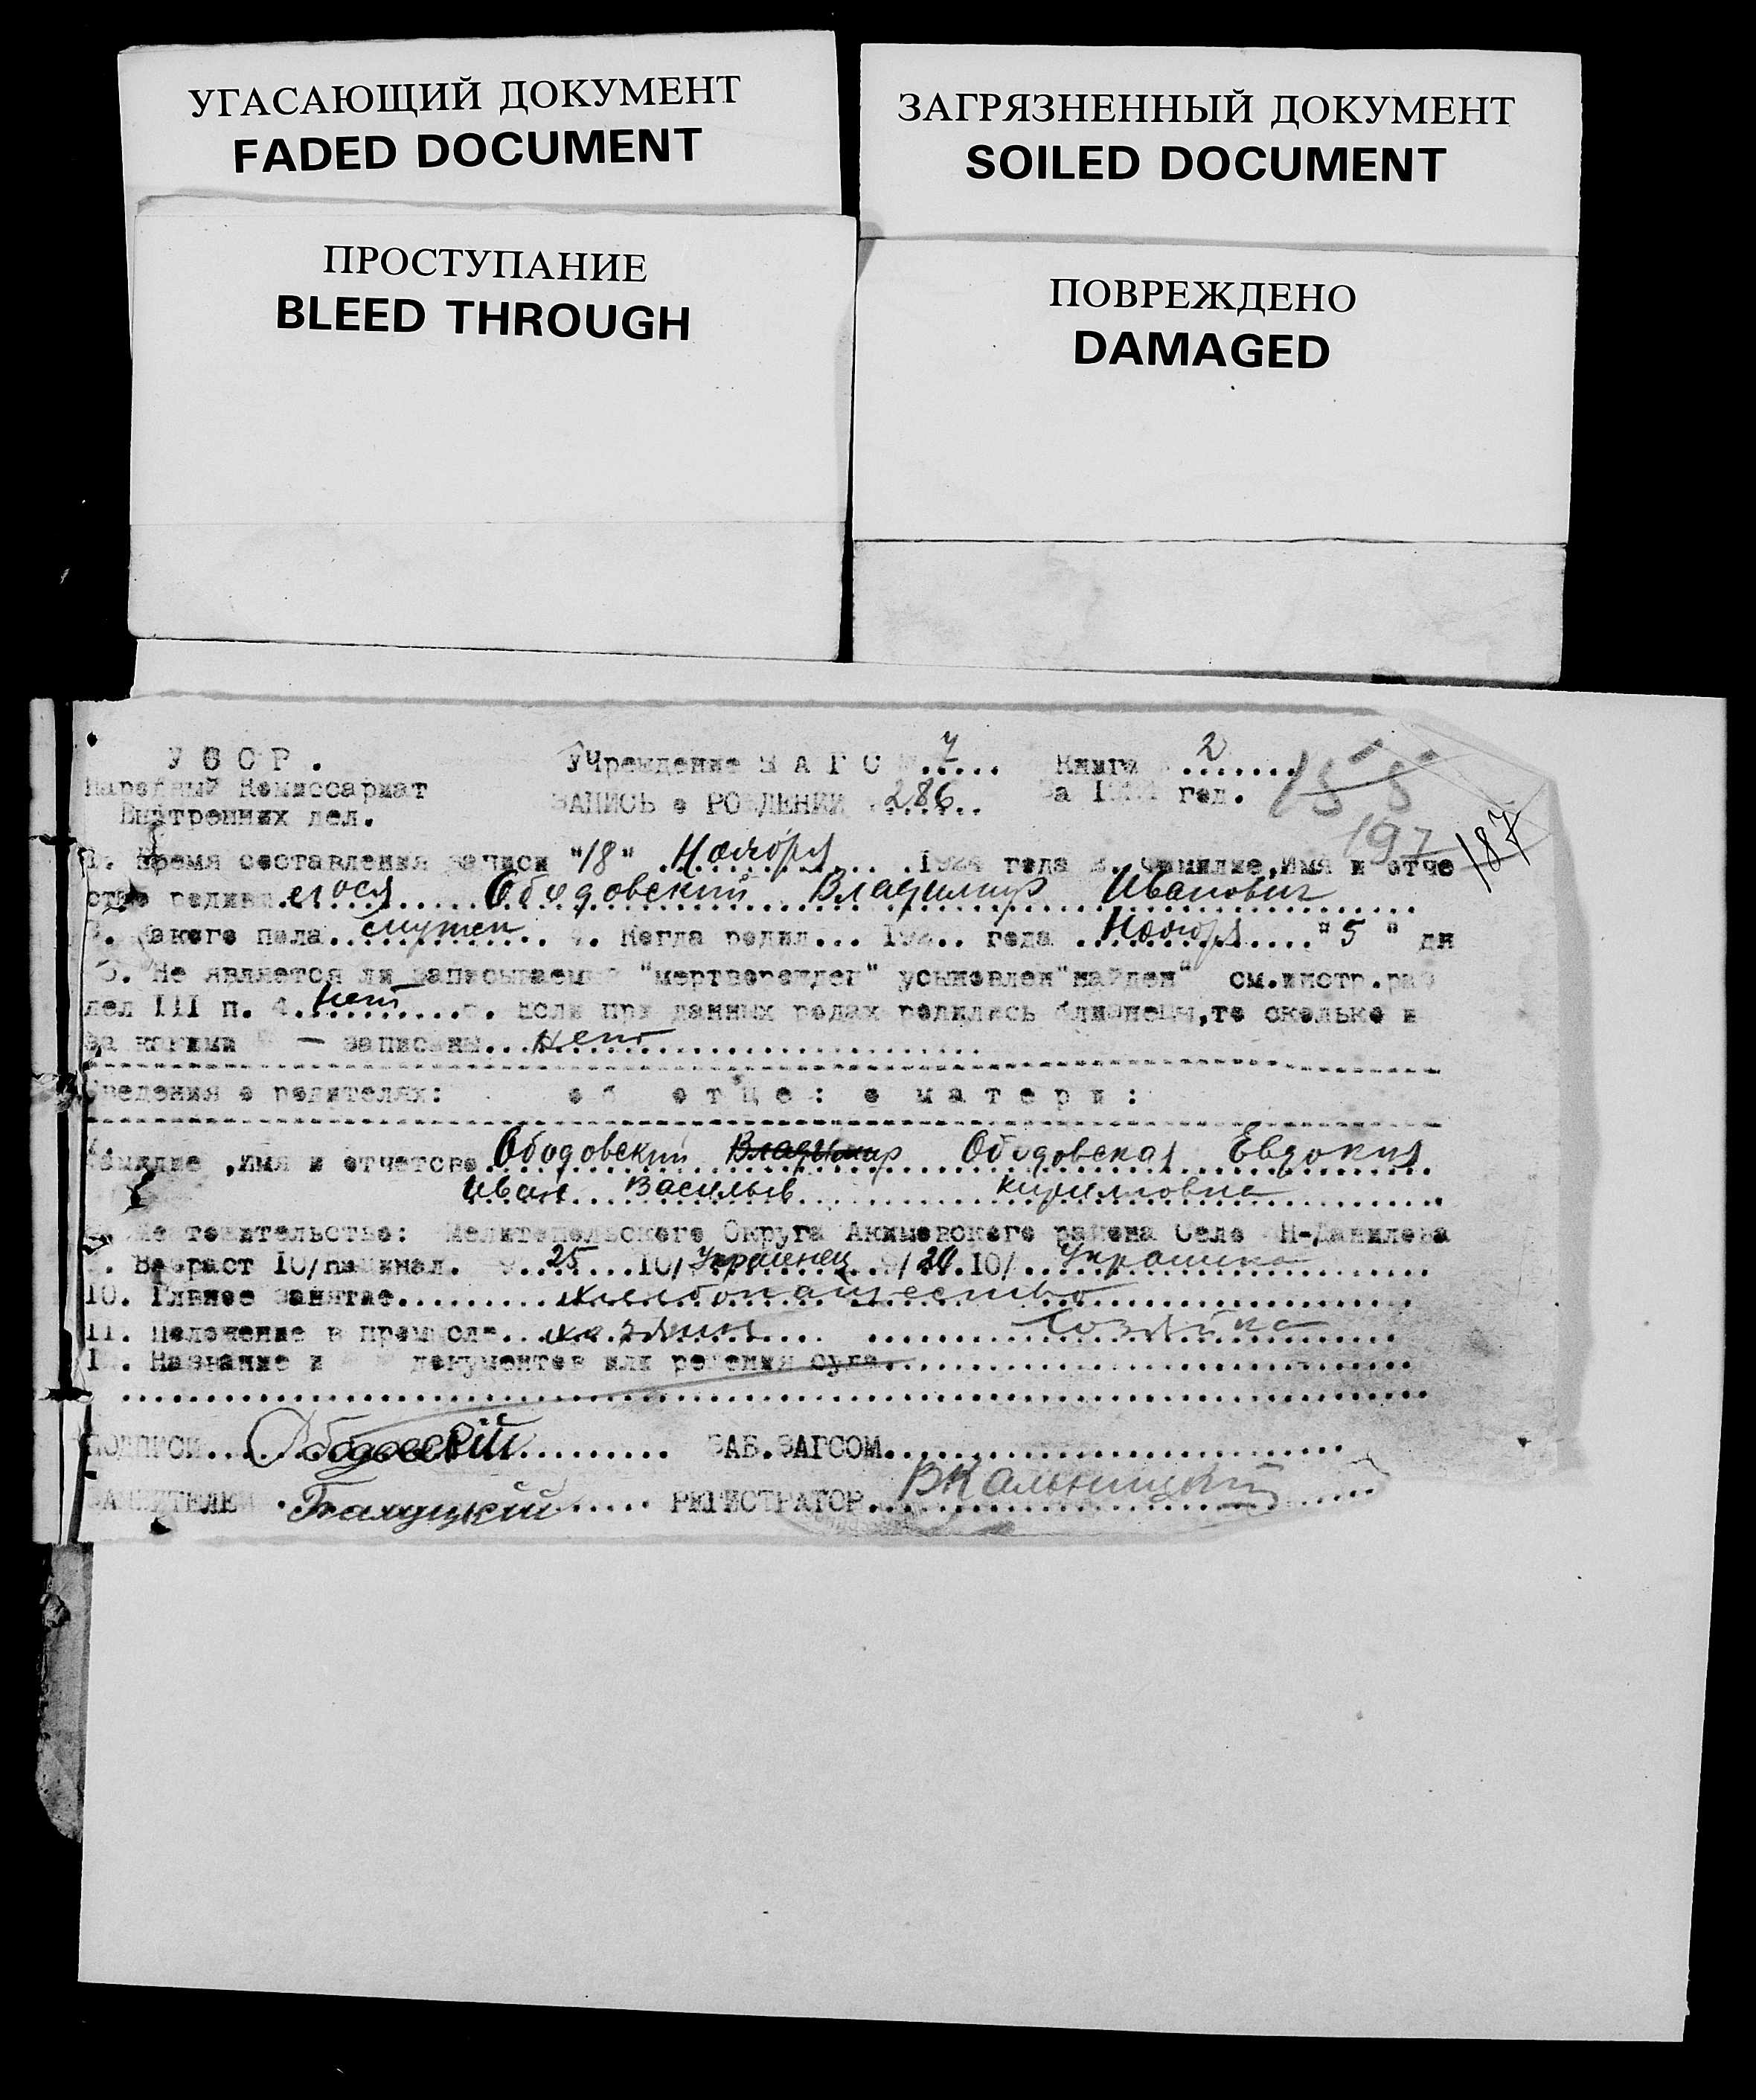 УГАСАЮЩИЙ ДОКУМЕНТ
FADED DOCUMENT
ЗАГРЯЗНЕННЫЙ ДОКУМЕНТ
SOILED DOCUMENT
ПРОСТУПАНИЕ
BLEED THROUGH
ПОВРЕЖДЕНО
DAMAGED
У С С Р . Учреждение З А Г С 7 Книга 2
Народный Комиссариат ЗАПИСЬ о РОЖДЕНИИ 286 За год. 155
Внутренних дел. 197 187
1. Время составления записи "18" Ноября года 2. Фамилие,Имя и отче
ство родивш егося Ободовский Владимир Иванович
3. Какого пола 4. Когда родил... 192.. года Ноября "5" дн
5. Не является ли записываемый "мертворожден" усыновлен "найден" см.инстр.раз
дел III п. 4. нет 6. Если при данных родах родились близнецы,то сколько и
за какими — записаны... нет
Сведения о родителях: об отце: о матери:
7. Фамилие ,Имя и отчество Ободовский Владимир Ободовская Евдокия
Иван Васильев Кирилловна
8. Местожительство: Мелитопольского Округа Акимовского района Село Н-Данилова
9. Возраст 10/национал. 9 25 10/ Украинец 9/ 10/ Украинка
10. Главное занятие хлебопашество
11. Положение в промысле хозяин Хозяйка
12. Название и документов или решения суда
ПОДПИСИ Ободовский ЗАВ.ЗАГСОМ
ЗАЯВИТЕЛЕЙ РЕГИСТРАТОР ВКальницкий